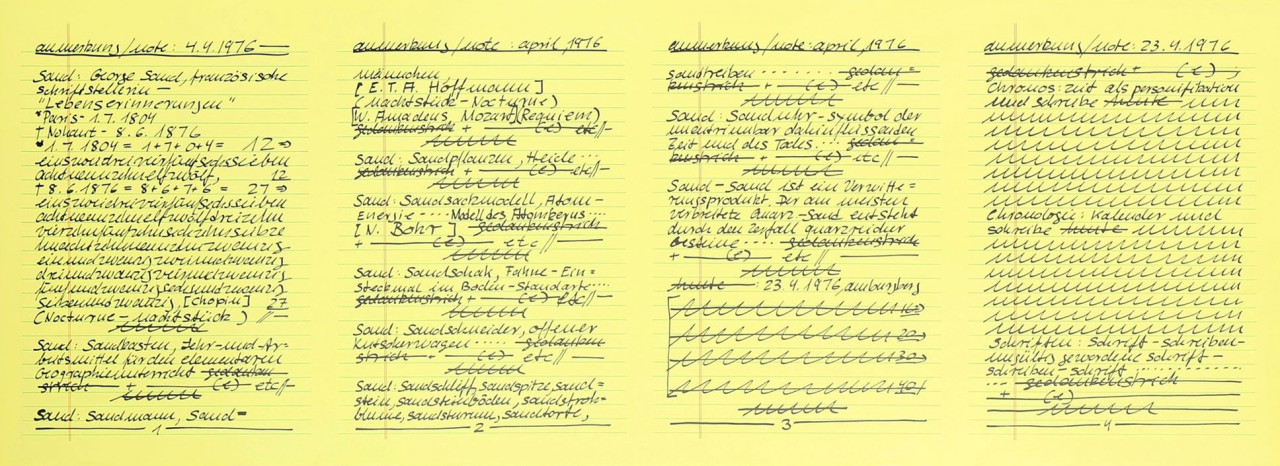 anmerkung/note: 4.4.1976
Sand: George Sand, französische
schriftstellerin –
"Lebenserinnerungen"
*Paris - 1.7.1804
† Nohant - 8.6.1876
* 1.7.1804 = 1+7+0+4 = 12 ⇒
einszweidreivierfünfsechssieben
achtneunzehnelfzwölf, 12
† 8.6.1876 = 8+6+7+6 = 27 ⇒
einszweidreivierfünfsechssieben
achtneunzehnelfzwölfdreizehn
vierzehnfünfzehnsechzehnsiebze
einundzwanzigzweiundzwanzig
dreiundzwanzigvierundzwanzig
fünfundzwanzigsechsundzwanzig
siebenundzwanzig, [Chopin] 27
(Nocturne - nachtstück) //–
Sand: Sandkasten, Lehr-und-Ar-
beitsmittel für den elementaren
Geographieunterricht gedanken
strich + (e) etc//–
Sand: Sandmann, Sand=
1
anmerkung/note: april, 1976
männchen
[E.T.A. Hoffmann]
(Nachtstück-Nocturne)
[W. Amadeus Mozart (Requiem)
gedankenstrich + (e) etc//–
Sand: Sandpflanzen, Heide
gedankenstrich + (e) etc//–
Sand: Sandsackmodell, Atom-
Energie .... Modell des Atomkerns ....
[N. Bohr] gedankenstrich
+ (e) etc//–
Sand: Sandschak, Fahne-Ein=
Steckmal im Boden-Standarte ....
gedankenstrich + (e) etc//–
Sand: Sandschneider, offener
Kutscherwagen ..... gedanken
strich – + (e) etc//
Sand: Sandschliff, Sandspitze, Sand=
stein, sandsteinböden, sandstroh=
blume, sandsturm, sandtorte,
2
anmerkung/note: april, 1976
sandtreiben ....... gedan=
kenstrich + (e) etc//–
Sand: Sanduhr-symbol der
unentrinnbar dahinfliessenden
Zeit und des Todes ... gedan=
kenstrich + (e) etc//–
Sand-Sand ist ein Verwitte=
rungsprodukt. Der am meisten
verbreitete Quarz-Sand entsteht
durch den Zerfall quarzreicher
Gesteine .... gedankenstrich
+ (e) etc//–
heute : 23.4.1976,
10
20
30
40
3
anmerkung/note: 23.4.1976
gedankenstrich + (e) ;
Chronos: zeit als personifikation
und schreibe heute
Chronologie: Kalender und
schreibe heute
Schriften: Schrift-schreiben-
ungültig gewordene schrift-
schreiben-schrift
... gedankenstrich
+ (e)
4